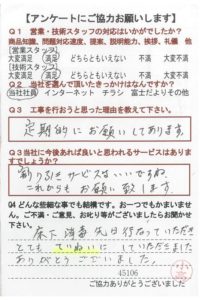 【アンケートにご協力お願いします】
Q1 営業・技術スタッフの対応はいかがでしたか?
商品知識、問題対応速度、提案、説明能力、挨拶、礼儀 他
[営業スタッフ]
大変満足 満足 どちらともいえない 不満 大変不満
[技術スタッフ]
大変満足 満足 どちらともいえない 不満 大変不満
Q2 当社を選んで頂いたきっかけはなんですか?
当社社員 インターネット チラシ 富士だよりその他
Q3 工事を行おうと思った理由を教えて下さい。
定期的にお願いしてあります
Q3 当社に今後あれば良いと思われるサービスはありま
すでしょうか?
割り引きサービスはいいですね
これからもお願い致します
Q4 どんな些細な事でも結構です。おーつでもかまいませ
ん。ご不満・ご意見、お叱り等がございましたらお聞か
せ下さい。
床下消毒 先日
とても ていねいに していただきました
ありがとうございました。
45106
ご協力ありがとうございました